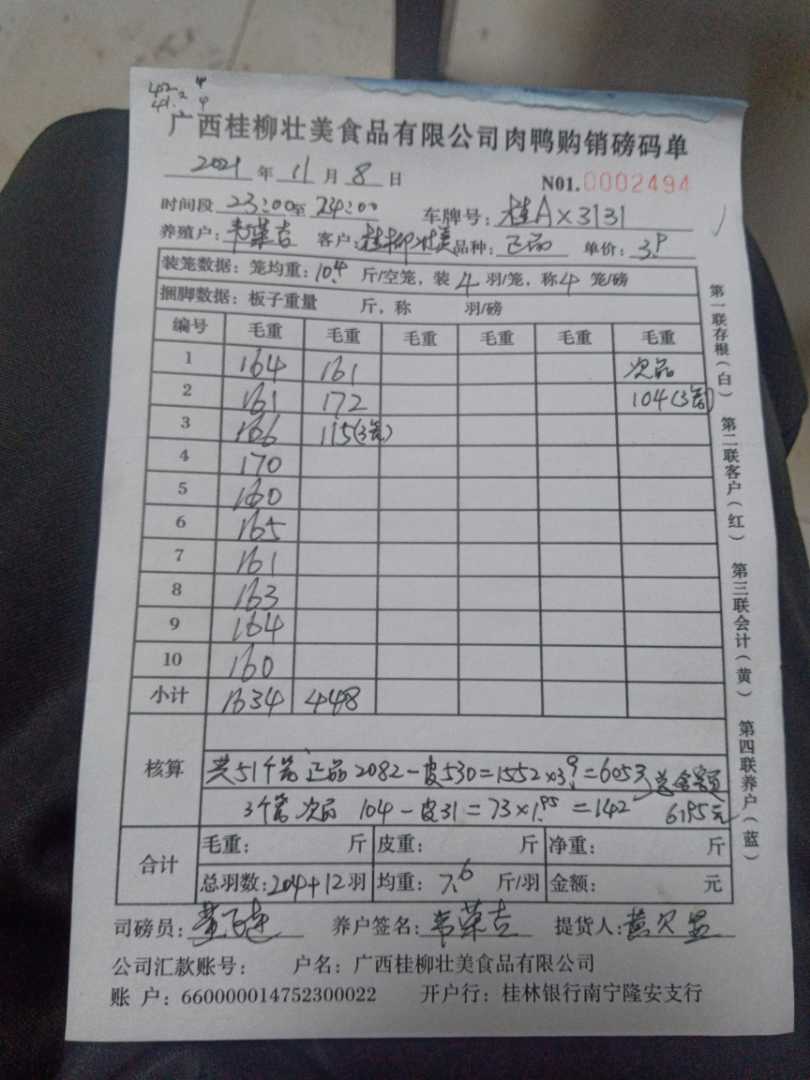 广西桂柳壮美食品有限公司肉鸭购销磅码单
2021 年 11 月 8 日 N01.0002494
时间段 23:00至 24:00 车牌号: 桂A×3131
养殖户: 韦荣吉 客户: 桂柳壮美 品种: 正品 单价: 3.9
装笼数据: 笼均重: 10.4 斤/空笼, 装 4 羽/笼, 称 4 笼/磅
捆脚数据: 板子重量 斤, 称 羽/磅
编号 毛重 毛重 毛重 毛重 毛重 毛重
1 164 161 次品
2 161 172 104(3笼)
3 166 115(3笼)
4 170
5 160
6 165
7 161
8 163
9 164
10 160
小计 1634 448
核算
共51个笼 正品 2082-皮530=1552×3.9=6053 总金额
3个笼 次品 104-皮31=73×1.95=142 6195元
合计 毛重: 斤 皮重: 斤 净重: 斤
总羽数: 204+12 羽 均重: 7.6 斤/羽 金额: 元
司磅员: 养户签名: 韦荣吉 提货人: 黄
公司汇款账号: 户名: 广西桂柳壮美食品有限公司
账 户: 660000014752300022 开户行: 桂林银行南宁隆安支行
第一联存根(白) 第二联客户(红) 第三联会计(黄) 第四联养户(蓝)